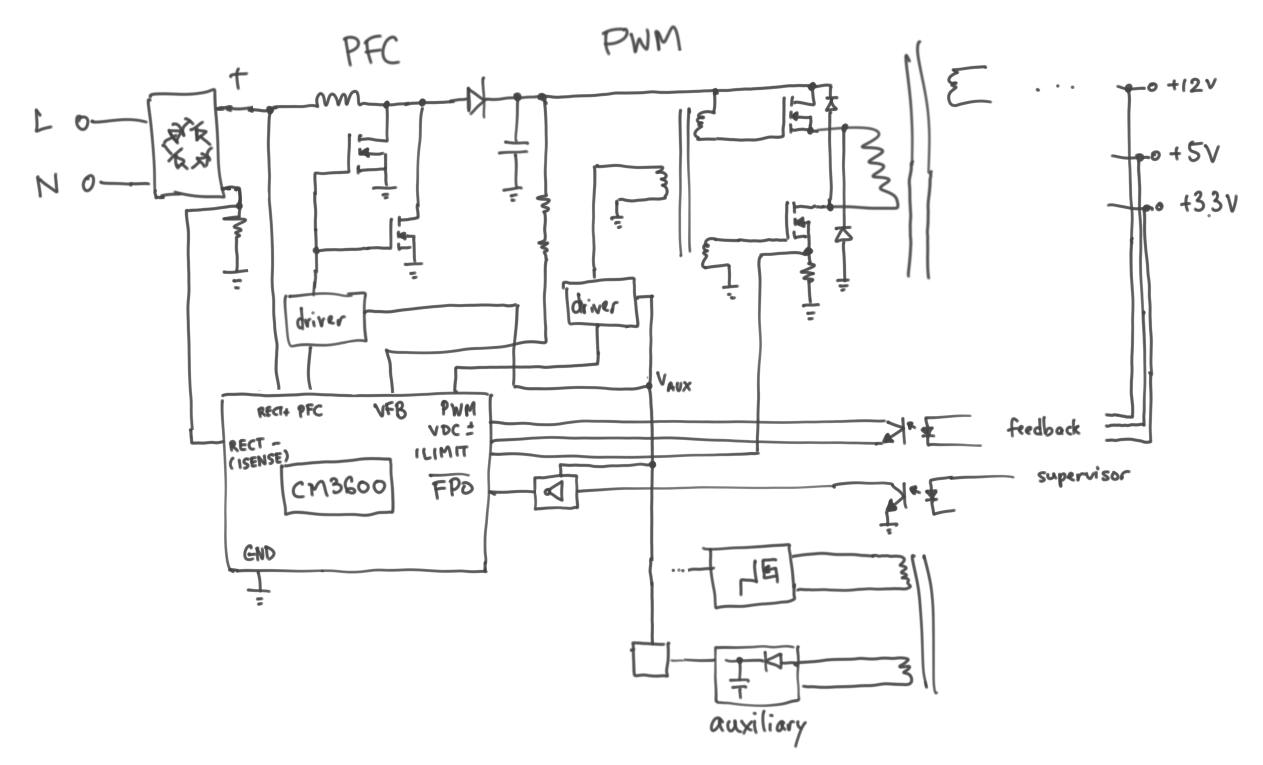 PFC
PWM
+
L
N
+12V
+5V
+3.3V
driver
driver
VAUX
RECT+ PFC VFB PWM
VDC ±
RECT - (ISENSE)
ILIMIT
CM3600
FPO
GND
feedback
supervisor
...
...
auxiliary